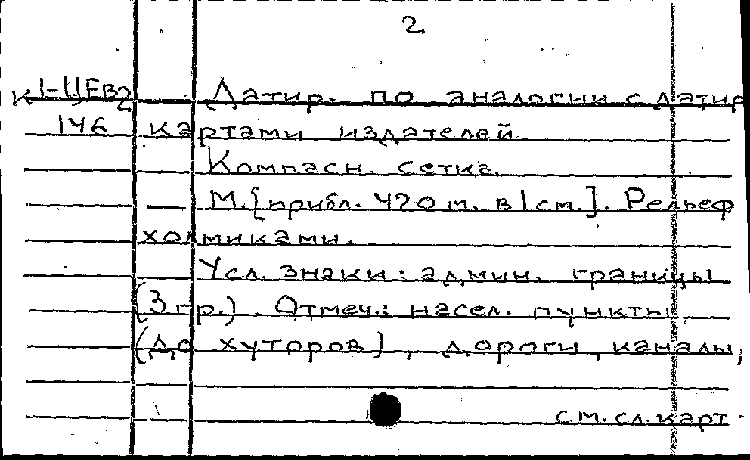 2
К 1-ЦЕв2 Датир. по аналогии с датир
146 картами издателей
Компасн. сетка.
М. [прибл. 420 м. в 1 см.]. Рельеф
холмиками.
Усл. знаки: админ. границы
(3 гр.). Отмеч.: насел. пункты
(до хуторов), дороги, каналы,
см. сл. карт.